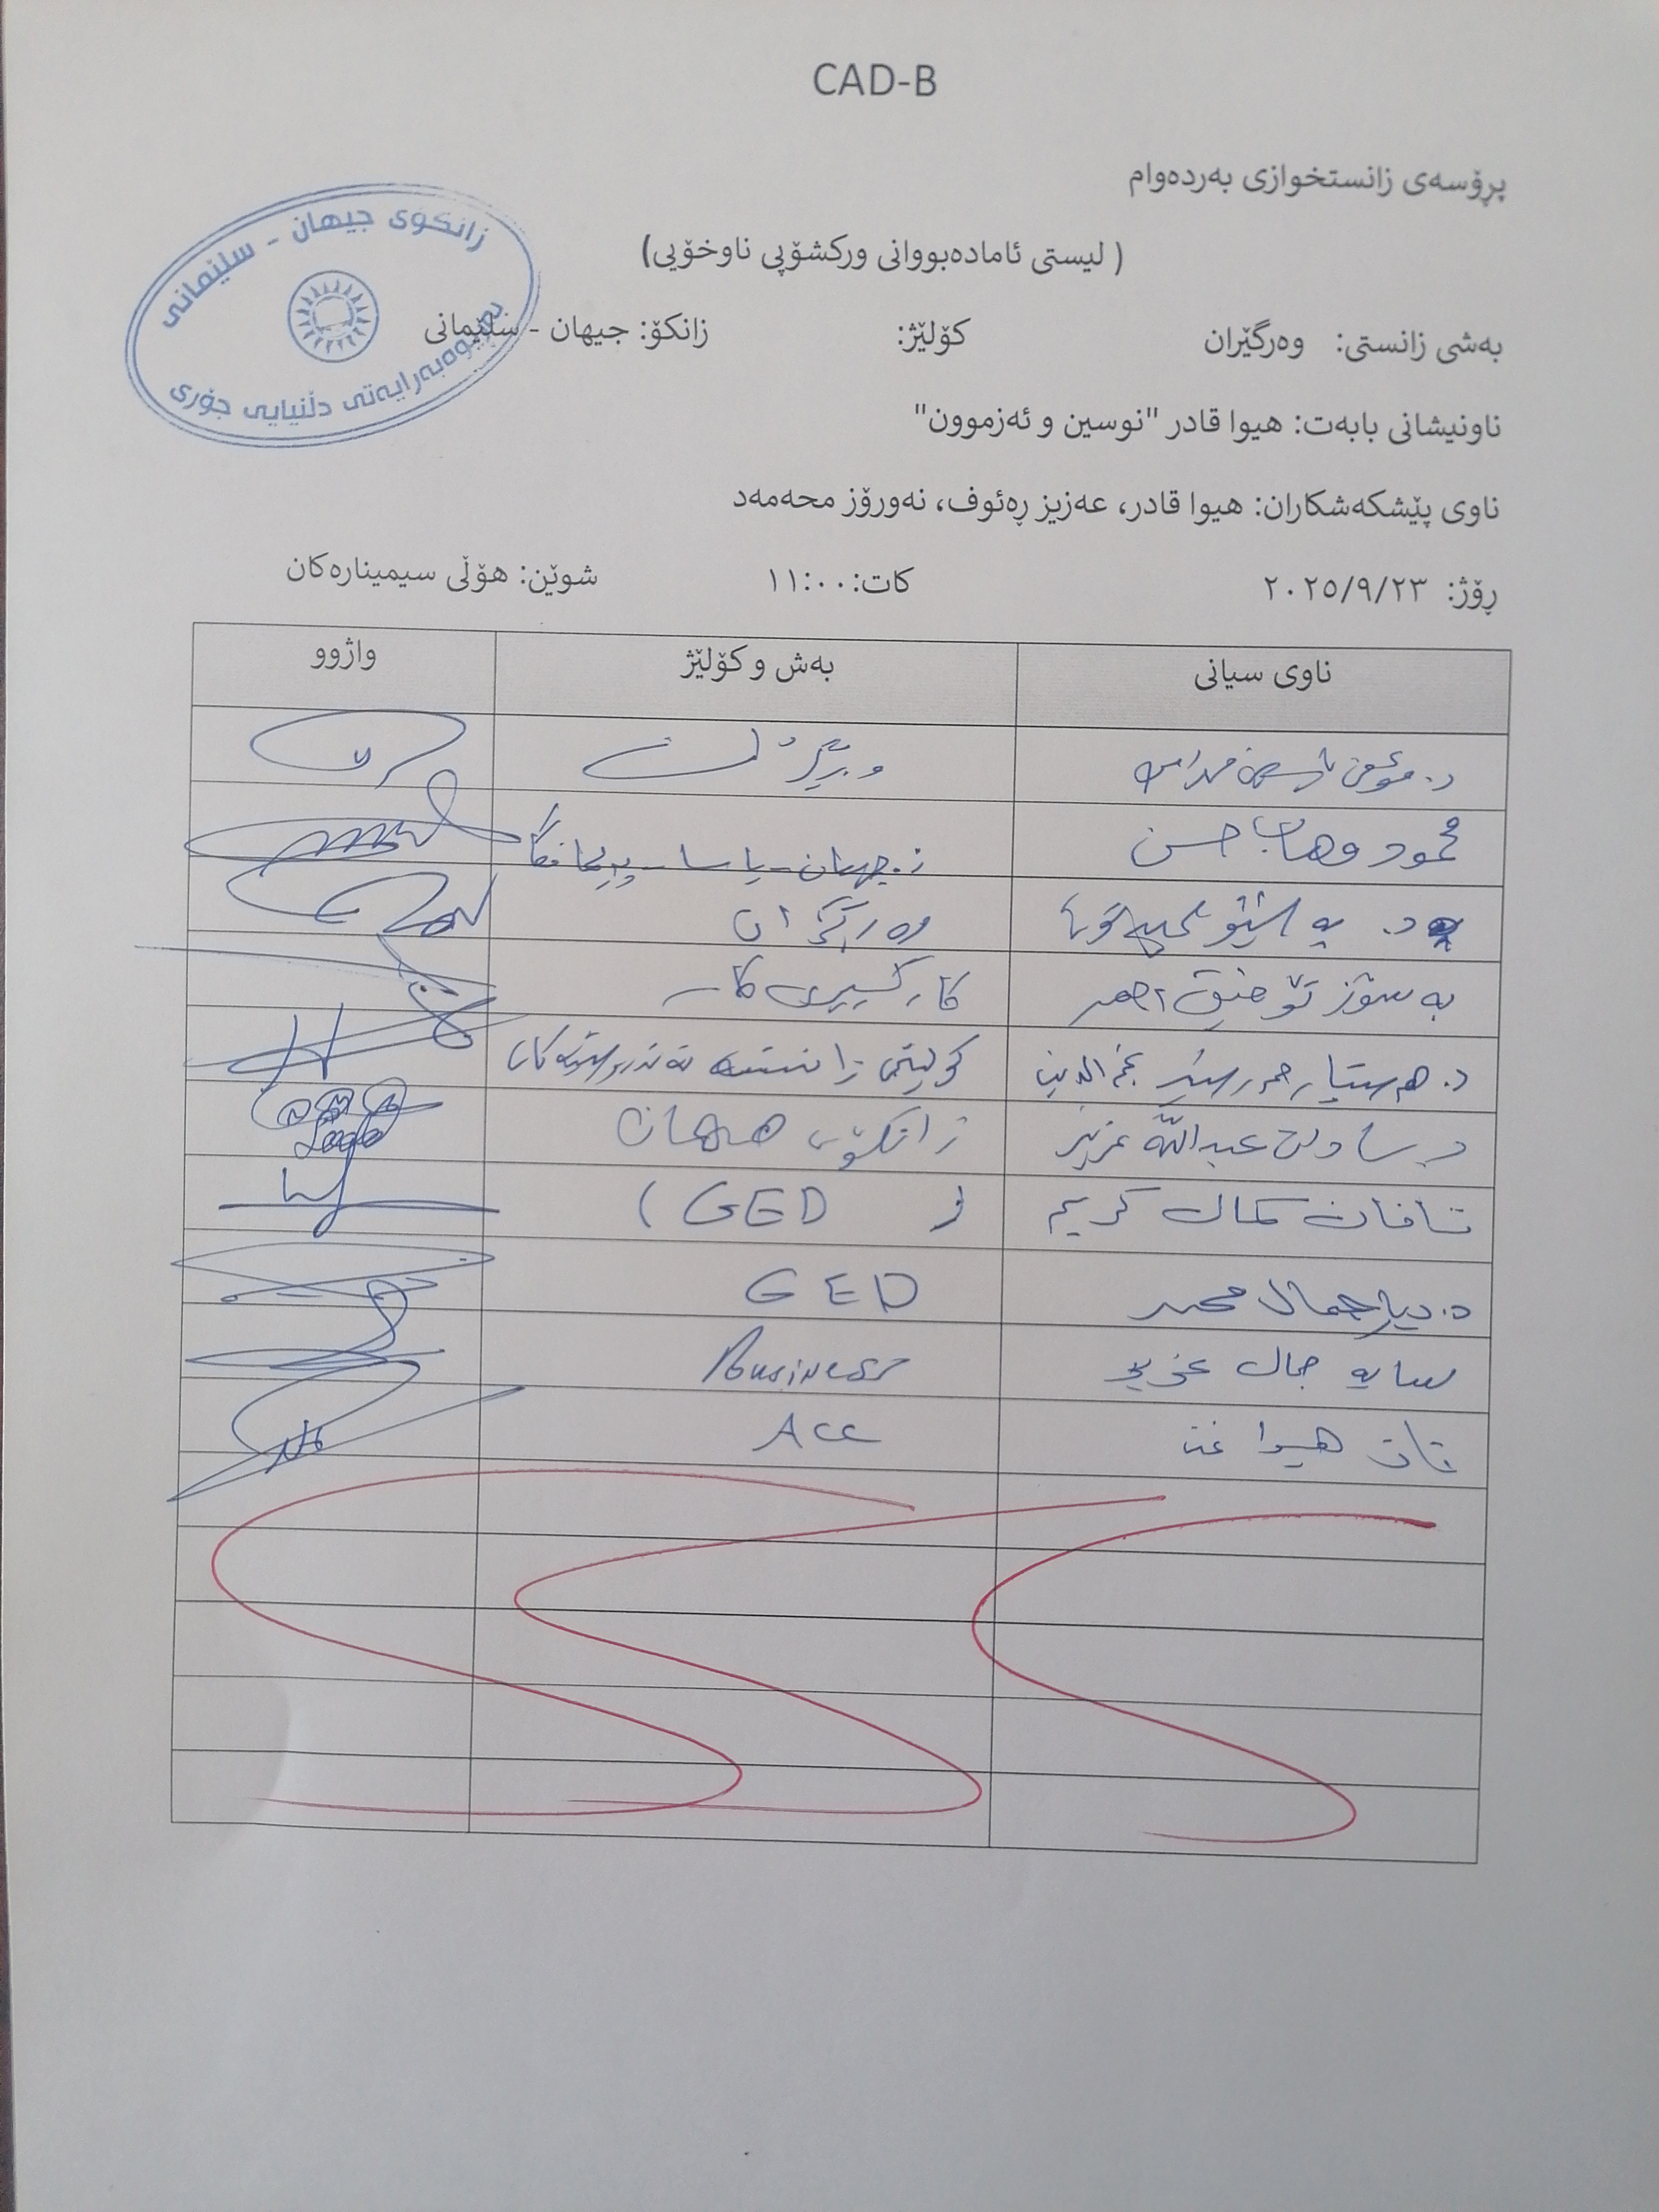 CAD-B
پڕۆسەی زانستخوازی بەردەوام
( لیستی ئامادەبووانی ورکشۆپی ناوخۆیی)
زانکۆی جیهان - سلێمانی
بەڕێوەبەرایەتی دڵنیایی جۆری
بەشی زانستی: وەرگێران کۆلێژ: زانکۆ: جیهان - سلێمانی
ناونیشانی بابەت: هیوا قادر "نوسین و ئەزموون"
ناوی پێشکەشکاران: هیوا قادر، عەزیز ڕەئوف، نەورۆز محەمەد
ڕۆژ: ٢٠٢٥/٩/٢٣ کات:١١:٠٠ شوێن: هۆڵی سیمینارەکان
ناوی سیانی بەش و کۆلێژ واژوو
د.
محمود وهاب حسن ز. جیهان - یاسا -
د. وەرگێران
بە سۆز تۆفیق احمد
د. نجم الدین
عبدالله عزیز زانکۆی جیهان
تافان کمال کریم (GED)
د. دیار جمال محمد GED
سایە جمال Business
هیوا Acc